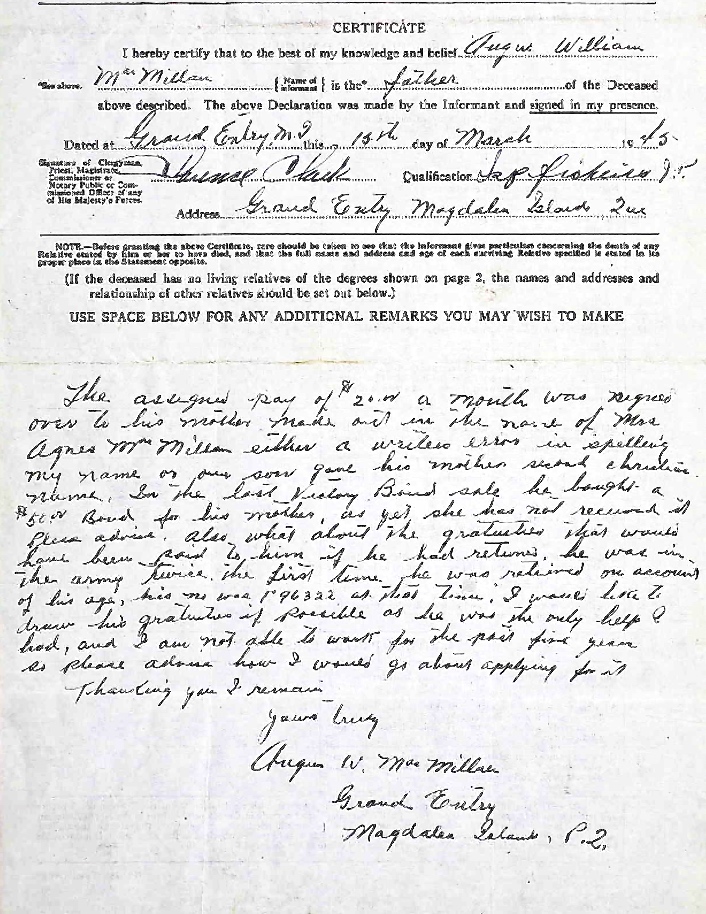 CERTIFICATE
I hereby certify that to the best of my knowledge and belief Angus William
*See above. MacMillan {Name of informant} is the* father of the Deceased
above described. The above Declaration was made by the Informant and signed in my presence.
Dated at Grand Entry, M.I this 15th day of March 1945
Signature of Clergyman, Priest, Magistrate, Commissioner or Notary Public or Commissioned Officer of any of His Majesty's Forces. Clark Qualification Insp fisheries J.P.
Address Grand Entry Magdalen Islands, Que
NOTE.—Before granting the above Certificate, care should be taken to see that the Informant gives particulars concerning the death of any
Relative stated by him or her to have died, and that the full name and address and age of each surviving Relative specified is stated in its
proper place in the Statement opposite.
(If the deceased has no living relatives of the degrees shown on page 2, the names and addresses and
relationship of other relatives should be set out below.)
USE SPACE BELOW FOR ANY ADDITIONAL REMARKS YOU MAY WISH TO MAKE
The assigned pay of $20.00 a month was signed
over to his mother made out in the name of Mrs
Agnes MacMillan either a writers error in spelling
my name or our son gave his mother second christian
name. In the last Victory Bond sale he bought a
$50.00 Bond, for his mother, as yet she has not received it
Please advise. Also what about the gratuities that would
have been paid to him if he had returned, he was in
the army twice, the first time, he was retired on account
of his age, his no was F96322 at that time, I would like to
draw his gratuities if possible as he was the only help I
had, and I am not able to work for the past five years
so please advise how I would go about applying for it
Thanking you I remain
yours truly
Angus W. MacMillan
Grand Entry
Magdalen Islands, P.Q.